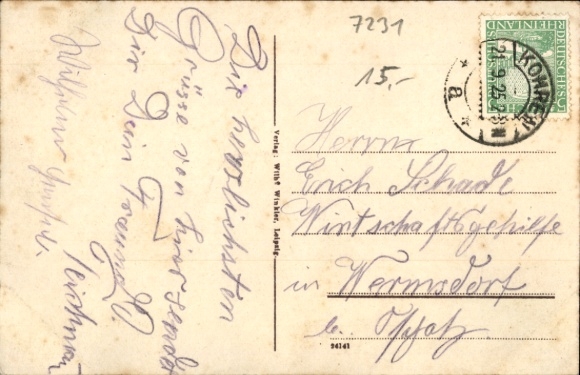 Die herzlichsten
Grüsse von hier sendet
Dir Dein Freund
Wilhelm
7231
15,-
DEUTSCHES REICH
RHEINLAND
KOHREN
21.9.25
* a *
Herrn
Erich Schade
Wirtschaftsgehilfe
in Wermsdorf
b. Oschatz
Verlag: Wilh. Winkler, Leipzig
24141